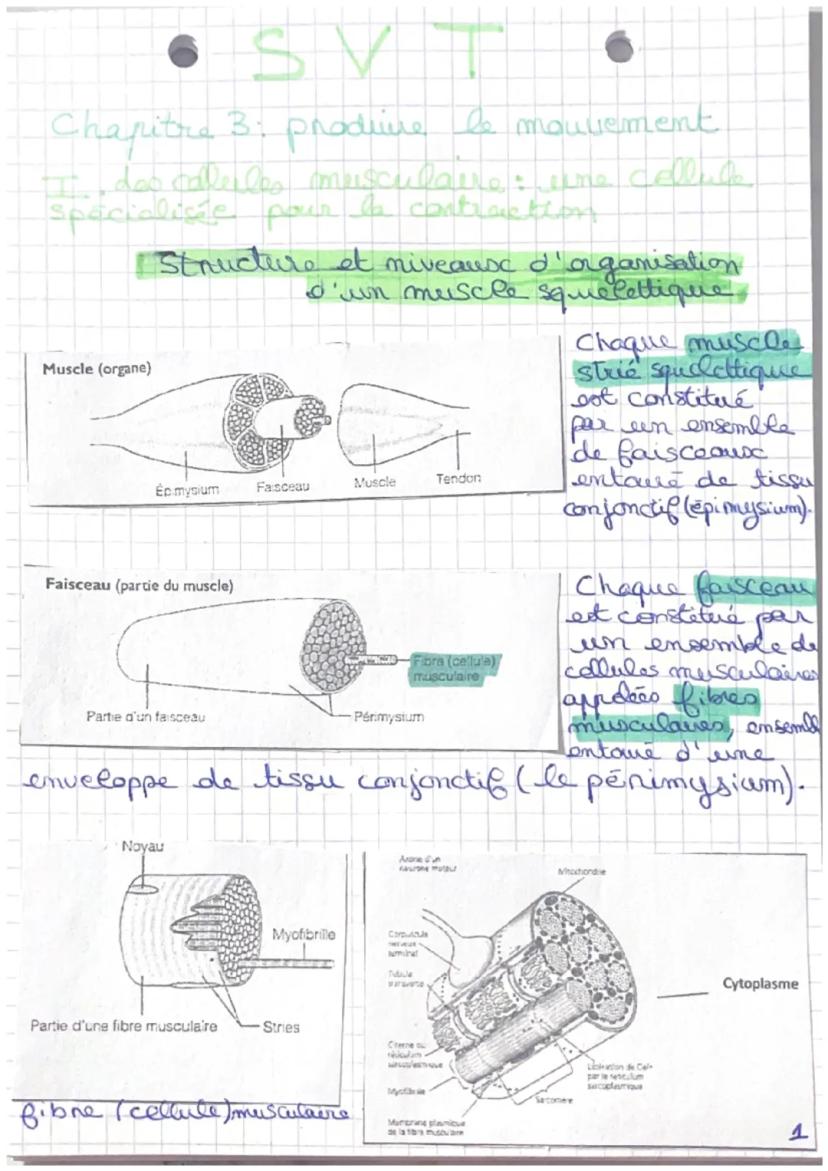 SVT
Chapitre 3: produire le mouvement
I. des cellules musculaire: une cellule
spécialisée pour la contraction
Structure et niveaux d'organisation
d'un muscle squelettique
Muscle (organe)
Épimysium
Faisceau
Muscle
Tendon
Chaque muscle
strié squelettique
est constitué
par un ensemble
de faisceaux
entouré de tissu
conjonctif (épimysium).
Faisceau (partie du muscle)
Fibre (cellule)
musculaire
Partie d'un faisceau
Périmysium
Chaque faisceau
est constitué par
un ensemble de
cellules musculaires
appelées fibres
musculaires, ensembl
entouré d'une
enveloppe de tissu conjonctif (le périmysium).
Noyau
Myofibrille
Partie d'une fibre musculaire
Stries
fibre (cellule) musculaire
Axone d'un
neurone moteur
Mitochondrie
Corpuscule
nerveux
terminal
Tubule
transverse
Citerne du
réticulum
sarcoplasmique
Myofibrille
Membrane plasmique
de la fibre musculaire
Sarcomère
Libération de Ca²⁺
par le réticulum
sarcoplasmique
Cytoplasme
1